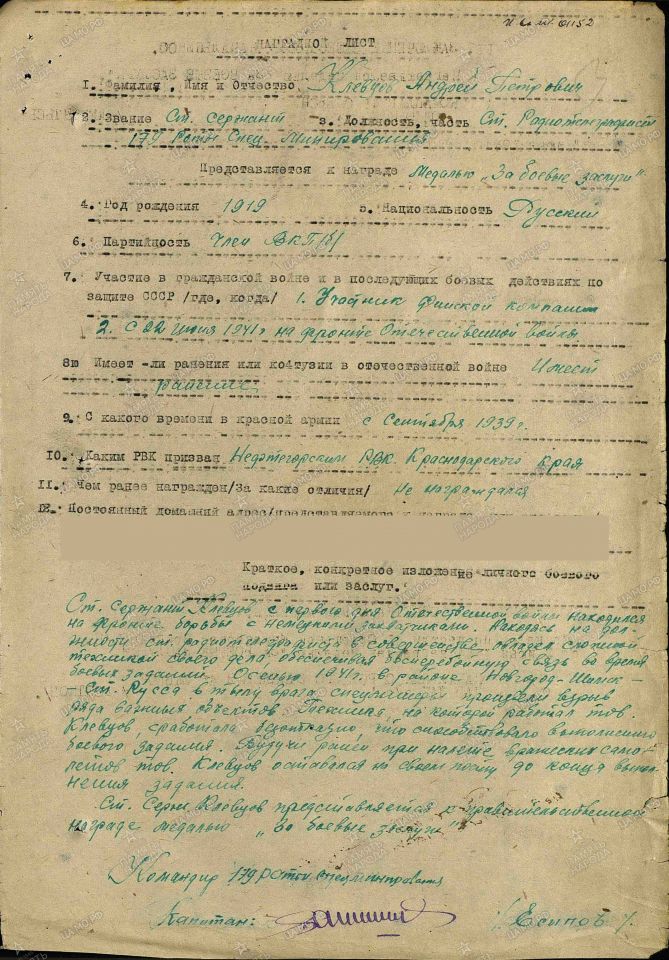 НАГРАДНОЙ ЛИСТ
1. Фамилия, Имя и Отчество Клевцов Андрей Петрович
2. Звание Ст. сержант 3. Должность, часть Ст. Радиотелеграфист
179 Роты Спец. Минирования
Представляется к награде Медалью „За боевые заслуги"
4. Год рождения 1919 5. Национальность Русский
6. Партийность Член ВКП/б/
7. Участие в гражданской войне и в последующих боевых действиях по
защите СССР /где, когда/ 1. Участник финской компании
2. С 22 июня 1941г на фронте Отечественной войны
8ю Имеет -ли ранения или контузии в отечественной войне Имеет
ранение
9. С какого времени в красной армии с Сентября 1939г.
10. Каким РВК призван Нефтегорским РВК Краснодарского края
11. Чем ранее награжден/За какие отличия/ Не награждался
12. Постоянный домашний адрес/представляемого к
Краткое, конкретное изложение личного боевого
подвига или заслуг.
Ст. Сержант Клевцов с первого дня Отечественной войны находился
на фронте борьбы с немецкими захватчиками. Находясь на дол-
жности ст. радиотелеграфиста в совершенстве овладел сложной
техникой своего дела обеспечивая бесперебойную связь во время
боевых заданий. Осенью 1941г. в районе Новгород-Шимск-
Ст. Русса в тылу врага спецминёрей произвели взрыв
ряда важных объектов. Техника, на которой работал тов.
Клевцов, сработала безотказно, что способствовало выполнению
боевого задания. Будучи ранен при налете вражеских само-
летов тов. Клевцов оставался на своем посту до конца выпол-
нения задания.
Ст. Серж. Клевцов представляется к правительственной
награде медалью „За боевые заслуги"
Командир 179 роты спецминирования
Капитан: /Есипов/.